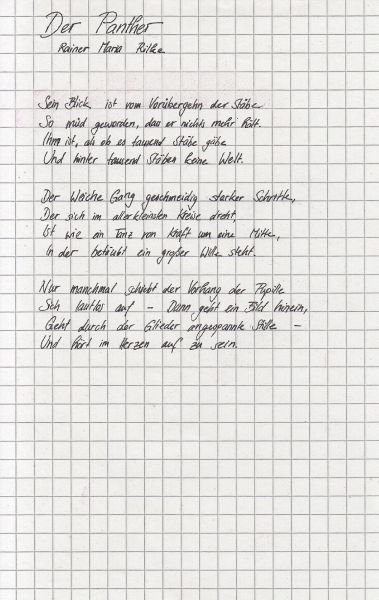 Der Panther
Rainer Maria Rilke
Sein Blick ist vom Vorübergehn der Stäbe
So müd geworden, das er nichts mehr hält.
Ihm ist, als ob es tausend Stäbe gäbe
Und hinter tausend Stäben keine Welt.
Der Weiche Gang geschmeidig starker Schritte,
Der sich im allerkleinsten Kreise dreht,
Ist wie ein Tanz von Kraft um eine Mitte,
In der betäubt ein großer Wille steht.
Nur manchmal schiebt der Vorhang der Pupille
Sich lautlos auf – Dann geht ein Bild hinein,
Geht durch der Glieder angespannte Stille –
Und hört im Herzen auf zu sein.